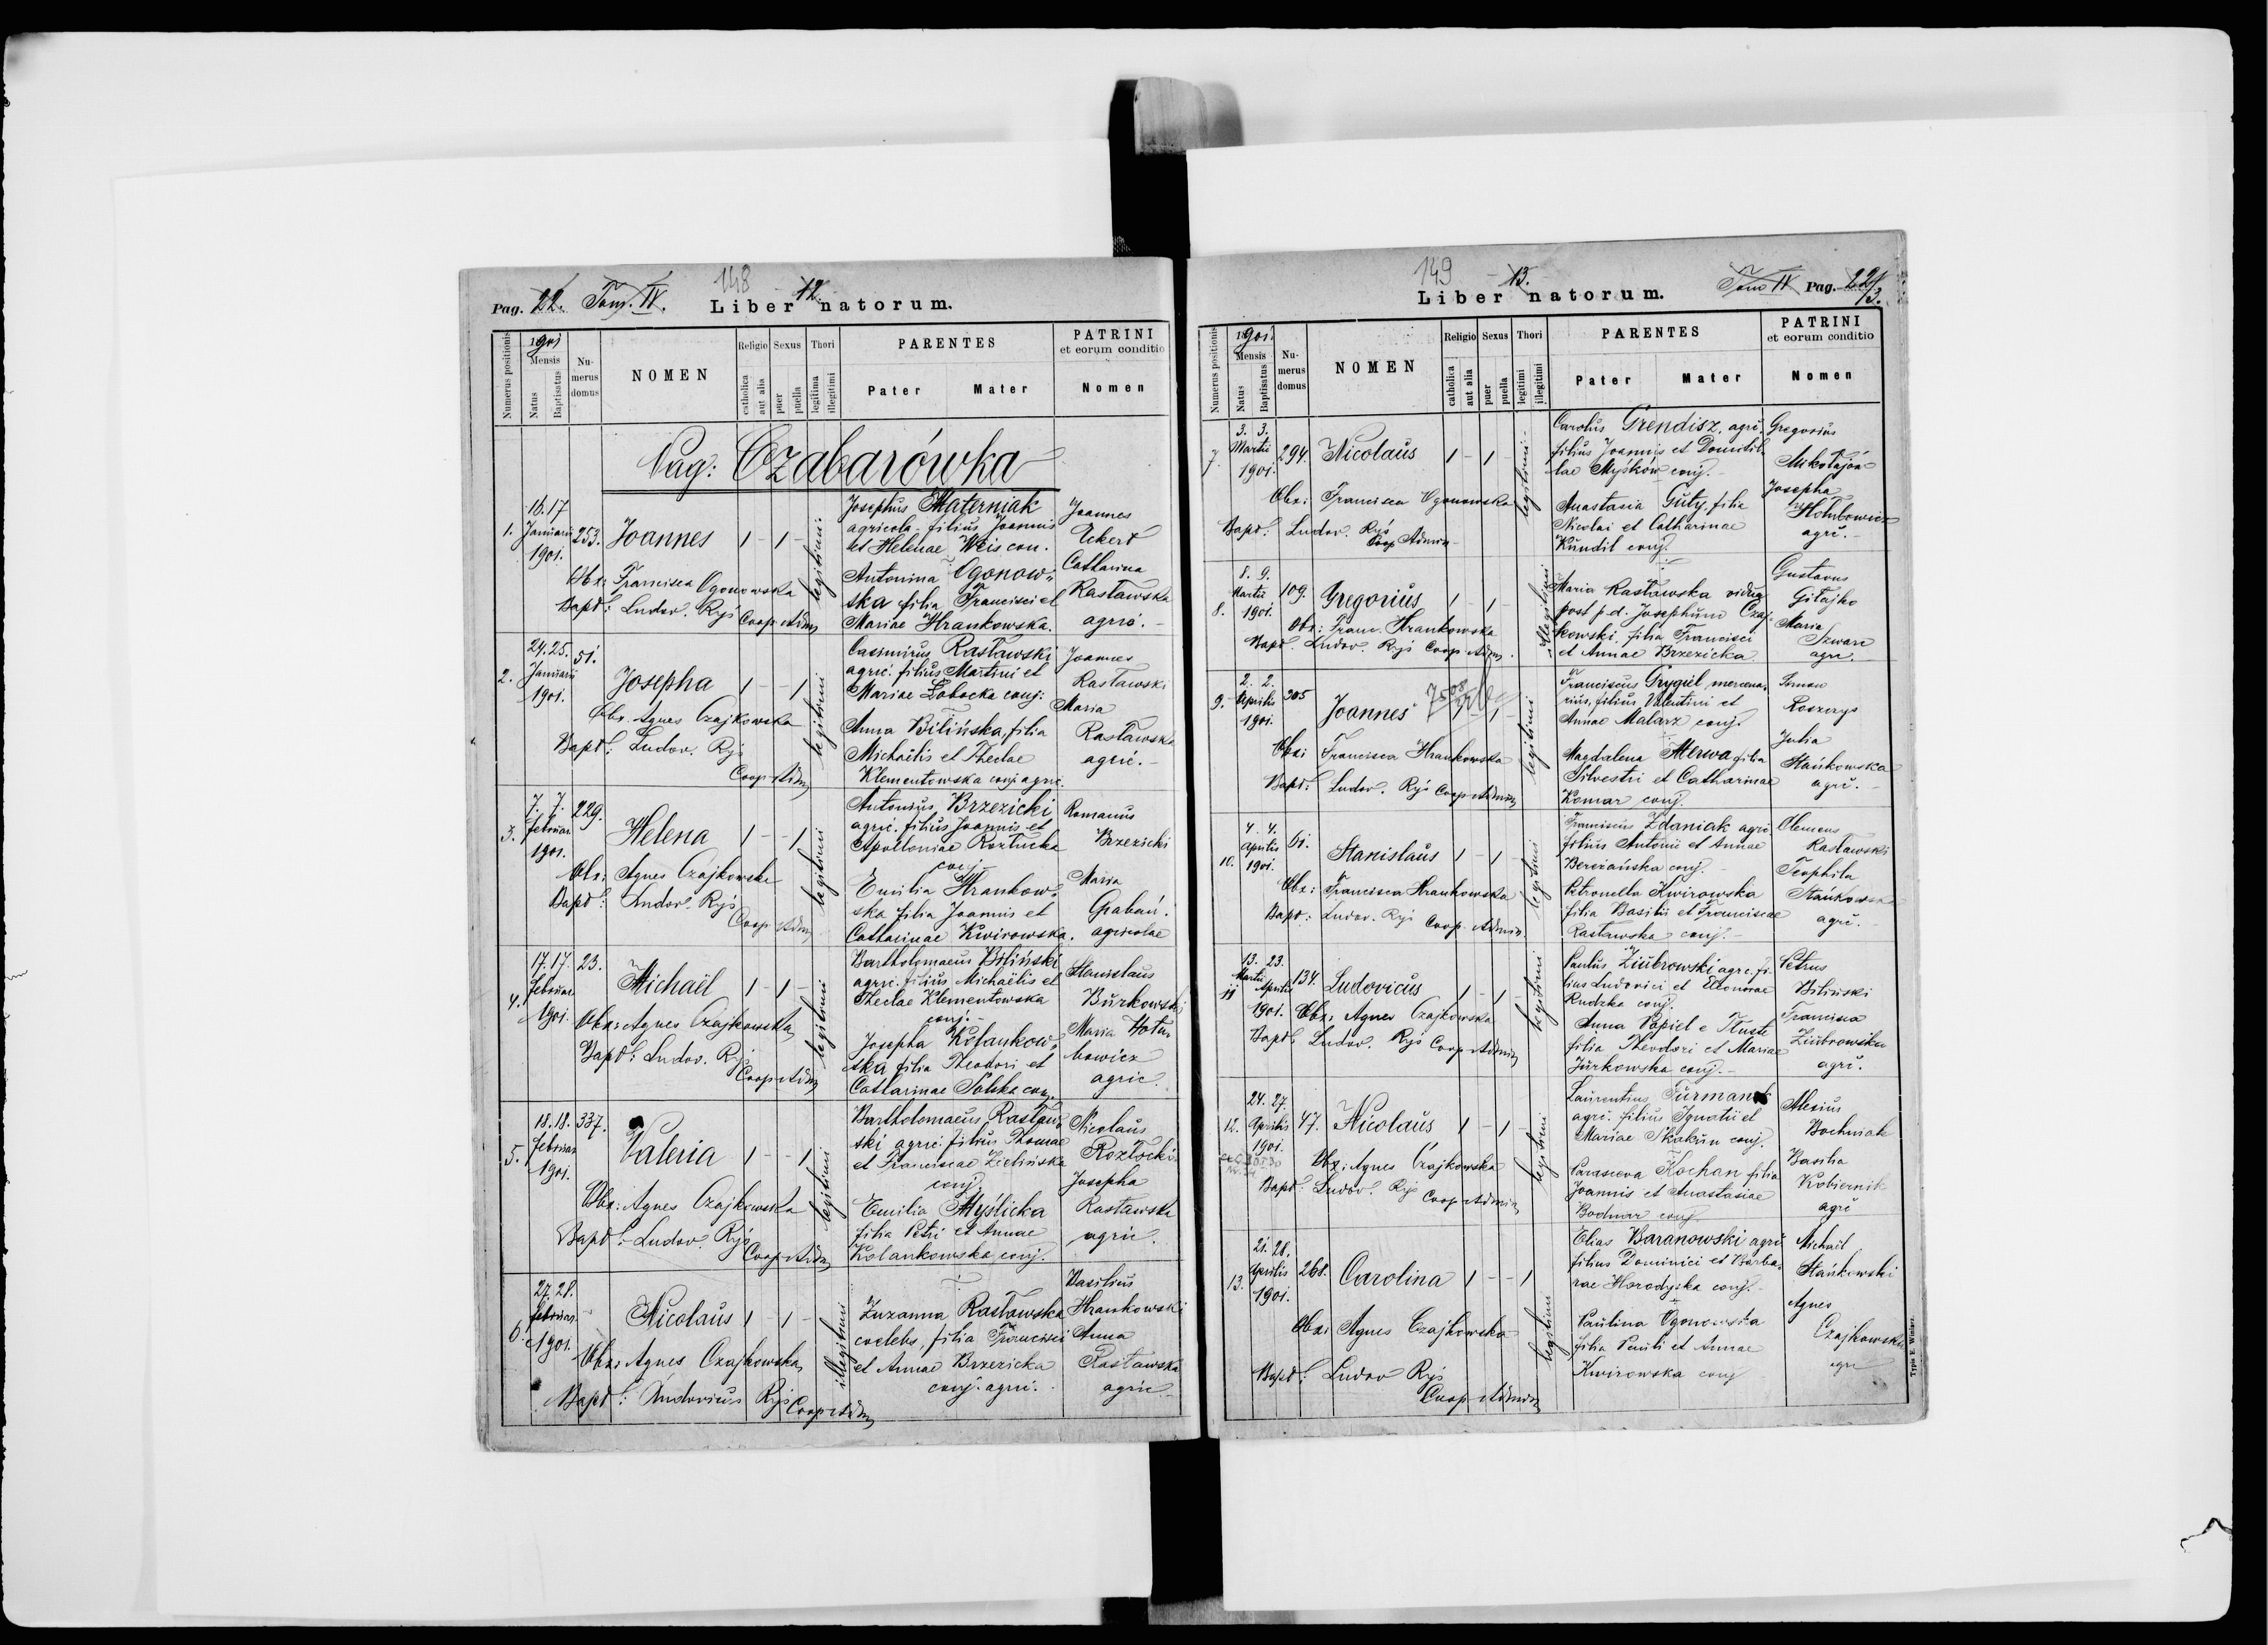 148
Pag. 22. Tom. IV. 12.
Liber natorum.
Numerus positionis
1901
Mensis
Natus
Baptisatus
Numerus domus
NOMEN
Religio
catholica
aut alia
Sexus
puer
puella
Thori
legitima
illegitimi
PARENTES
Pater Mater
PATRINI
et eorum conditio
Nomen
Pag: Czabarówka
1.
16. 17
Januarii
1901.
253.
Joannes
1 - 1 -
legitimi
Obx: Francisca Ogonowska
Bapt: Ludov. Ryś Coop. Adm
Josephus Materniak
agricola filius Joannis
et Helenae Weis con.
Antonina Ogonow-
ska filia Francisci et
Mariae Hrankowska.
Joannes
Eckert
Catharina
Rasławska
agric. -
2.
24. 25.
Januarii
1901.
51.
Josepha
1 - - 1
legitimi
Obx. Agnes Czajkowska
Bapt: Ludov. Ryś
Coop. Adm
Casimirus Rasławski
agric. filius Martini et
Mariae Łobocka conj:
Anna Bilińska, filia
Michaëlis et Theclae
Klementowska conj. agric.
Joannes
Rasławski
Maria
Rasławska
agric. -
3.
7. 7.
Februar
1901.
229.
Helena
1 - - 1
legitimi
Obx: Agnes Czajkowska
Bapt: Ludov. Ryś
Coop. Adm
Antonius Brzezicki
agric. filius Joannis et
Apolloniae Roztucka
conj
Emilia Hrankow-
ska filia Joannis et
Catharinae Kwirowska.
Romanus
Brzezicki
Maria
Grabań.
agricolae
4.
17. 17.
Februar
1901.
23.
Michaël
1 - 1 -
legitimi
Obx: Agnes Czajkowska
Bapt: Ludov. Ryś
Coop. Adm
Bartholomaeus Biliński
agric. filius Michaëlis et
Theclae Klementowska
conj. -
Josepha Kolankow-
ska filia Theodori et
Catharinae Polka conj.
Stanislaus
Burkowski
Maria Hołu-
bowicz
agric.
5.
18. 18.
Februar
1901.
337.
Valeria
1 - - 1
legitimi
Obx: Agnes Czajkowska
Bapt: Ludov. Ryś
Coop. Adm
Bartholomaeus Rasław-
ski agric. filius Thomae
et Franciscae Zielińska
conj.
Emilia Myślicka
filia Petri et Annae
Kolankowska conj.
Nicolaus
Rozłocki
Josepha
Rasławska
agric.
6.
27. 28.
Februar
1901.
Nicolaus
1 - 1 -
illegitimi
Obx: Agnes Czajkowska
Bapt: Ludovicus Ryś Coop. Adm
Zuzanna Rasławska
coelebs, filia Francisci
et Annae Brzezicka
conj. agric.
Basilius
Hrankowski
Anna
Rasławska
agric
149
13.
Liber natorum.
Tom IV Pag. 22/3.
Numerus positionis
1901.
Mensis
Natus
Baptisatus
Numerus domus
NOMEN
Religio
catholica
aut alia
Sexus
puer
puella
Thori
legitimi
illegitimi
PARENTES
Pater Mater
PATRINI
et eorum conditio
Nomen
7
3. 3.
Martii
1901.
294.
Nicolaus
1 - 1 -
legitimi
Obx: Francisca Ogonowska
Bapt: Ludov. Ryś
Coop Admin
Carolus Grendisz, agric.
filius Joannis et Domitil-
lae Myśków conj. -
Anastasia Guty, filia
Nicolai et Catharinae
Kundil conj.
Gregorius
Mikołajów
Josepha
Hołubowicz
agric. -
8.
8. 9.
Martii
1901.
109.
Gregorius
1 - 1 -
illegitimi
Obx: Franc. Hrankowska
Bapt. Ludov. Ryś Coop. Adm.
Maria Rasławska vidua
post p. d. Josephum Czaj-
kowski, filia Francisci
et Annae Brzezicka
Gustavus
Gitajko
Maria
Szwarc
agr.
9.
2. 2.
Aprilis
1901.
305
Joannes
1 - 1 -
legitimi
Obx: Francisca Hrankowska
Bapt: Ludov. Ryś Coop. Admin
Franciscus Grygiel, mercena-
rius, filius Valentini et
Annae Malarz conj.
Magdalena Merwa filia
Silvestri et Catharinae
Komar conj.
Julia
Stańkowska
agric. -
10.
4. 4.
Aprilis
1901.
61.
Stanislaus
1 - 1 -
legitimi
Obx: Francisca Hrankowska
Bapt: Ludov. Ryś Coop. Admin.
Franciscus Zdaniak agric
filius Antonii et Annae
Bereżańska conj. -
Petronella Kwirowska
filia Basilii et Franciscae
Rasławska conj. -
Clemens
Rasławski
Teophila
Stańkowska
agric. -
11
13. 23.
Martii
Aprilis
1901.
134.
Ludovicus
1 - 1 -
legitimi
Obx: Agnes Czajkowska
Bapt: Ludov. Ryś Coop. Admin
Paulus Ziubrowski agric. fi-
lius Ludovici et Eleonorae
Rudzka conj.
Anna Popiel e Tłuste
filia Theodori et Mariae
Jurkowska conj. -
Petrus
Biliński
Francisca
Ziubrowska
agric.
12.
24. 27.
Aprilis
1901.
47.
Nicolaus
1 - 1 -
legitimi
Obx: Agnes Czajkowska
Bapt: Ludov. Ryś
Coop. Admin
Laurentius Furmanek
agric. filius Ignatii et
Mariae Skakun conj.
Parasceva Kochan filia
Joannis et Anastasiae
Bodnar conj.
Alexius
Bochniak
Basilia
Kobiernik
agric
13.
21. 28.
Aprilis
1901.
268.
Carolina
1 - - 1
legitimi
Obx: Agnes Czajkowska
Bapt: Ludov Ryś
Coop. Admin
Elias Baranowski agric
filius Dominici et Barba-
rae Horodyska conj. -
Paulina Ogonowska
filia Pauli et Annae
Kwirowska conj
Michaël
Stańkowski
Agnes
Czajkowska
agr
Typis E. Winiarz.